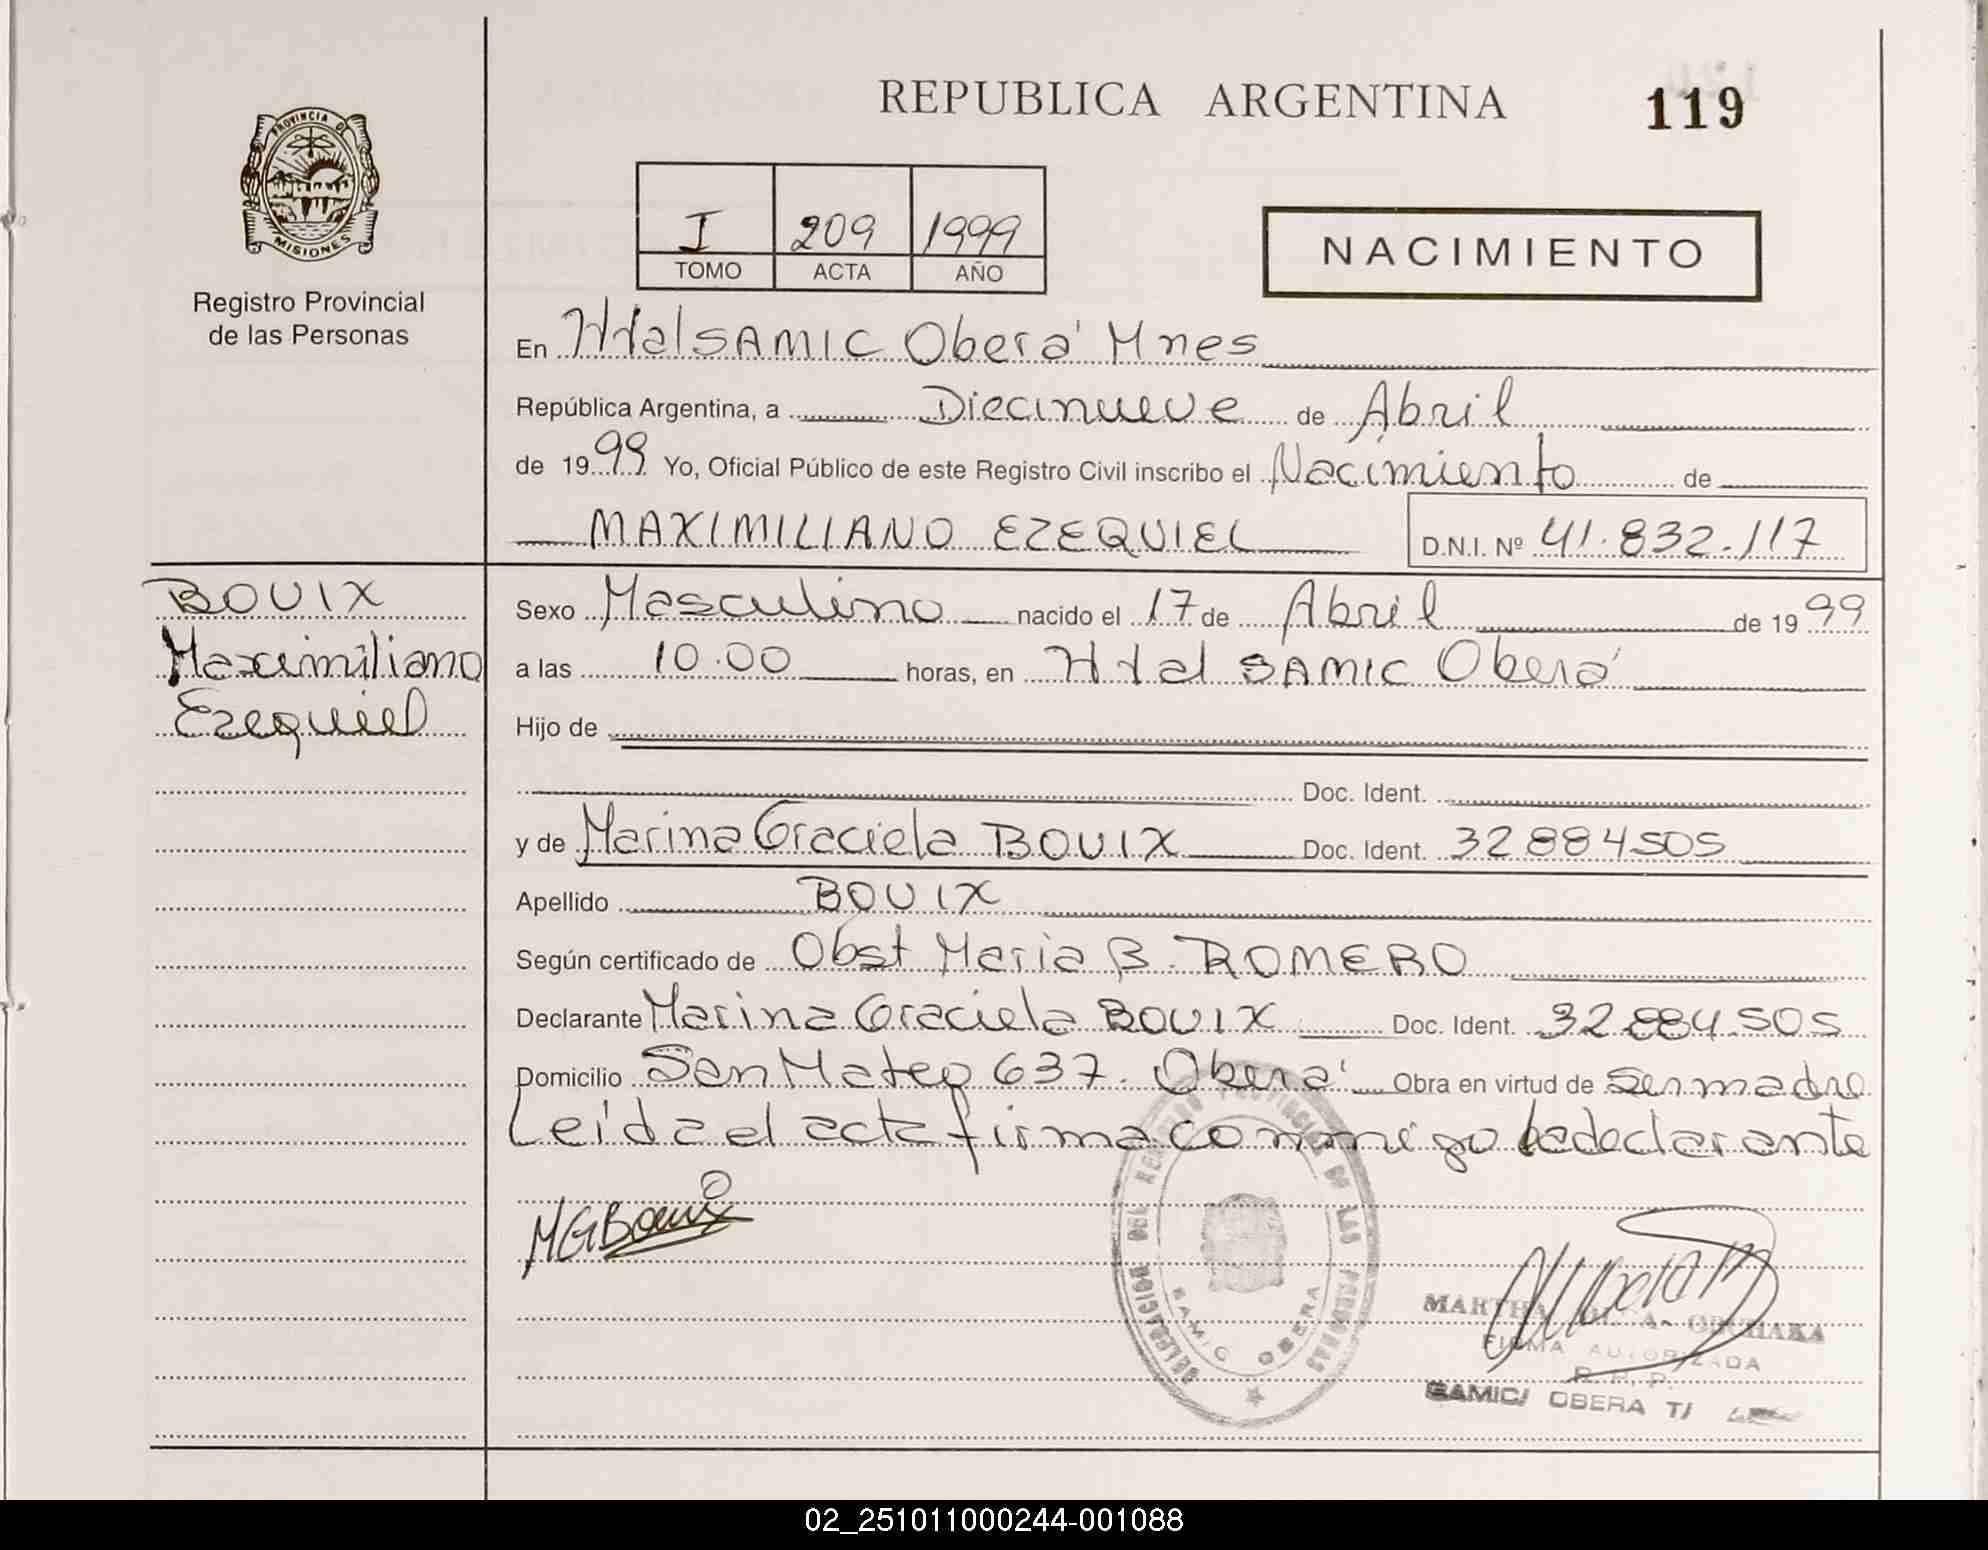 REPUBLICA ARGENTINA
119
PROVINCIA DE
MISIONES
Registro Provincial
de las Personas
I 209 1999
TOMO ACTA AÑO
NACIMIENTO
En Htal SAMIC Oberá Mnes
República Argentina, a Diecinueve de Abril
de 1999 Yo, Oficial Público de este Registro Civil inscribo el Nacimiento de
MAXIMILIANO EZEQUIEL D.N.I. Nº 41.832.117
BOUIX
Maximiliano
Ezequiel
Sexo Masculino nacido el 17 de Abril de 1999
a las 10.00 horas, en Htal SAMIC Oberá
Hijo de
Doc. Ident.
y de Marina Graciela BOUIX Doc. Ident. 32884505
Apellido BOUIX
Según certificado de Obst Maria B. ROMERO
Declarante Marina Graciela BOUIX Doc. Ident. 32.884.505
Domicilio San Mateo 637. Oberá Obra en virtud de ser madre
Leída el acta firma conmigo la declarante
MGBouix
DELEGACION DEL REGISTRO PROVINCIAL DE LAS PERSONAS
SAMIC OBERA
MARTHA
FIRMA AUTORIZADA
R. P. P.
SAMIC/ OBERA T/
02_251011000244-001088